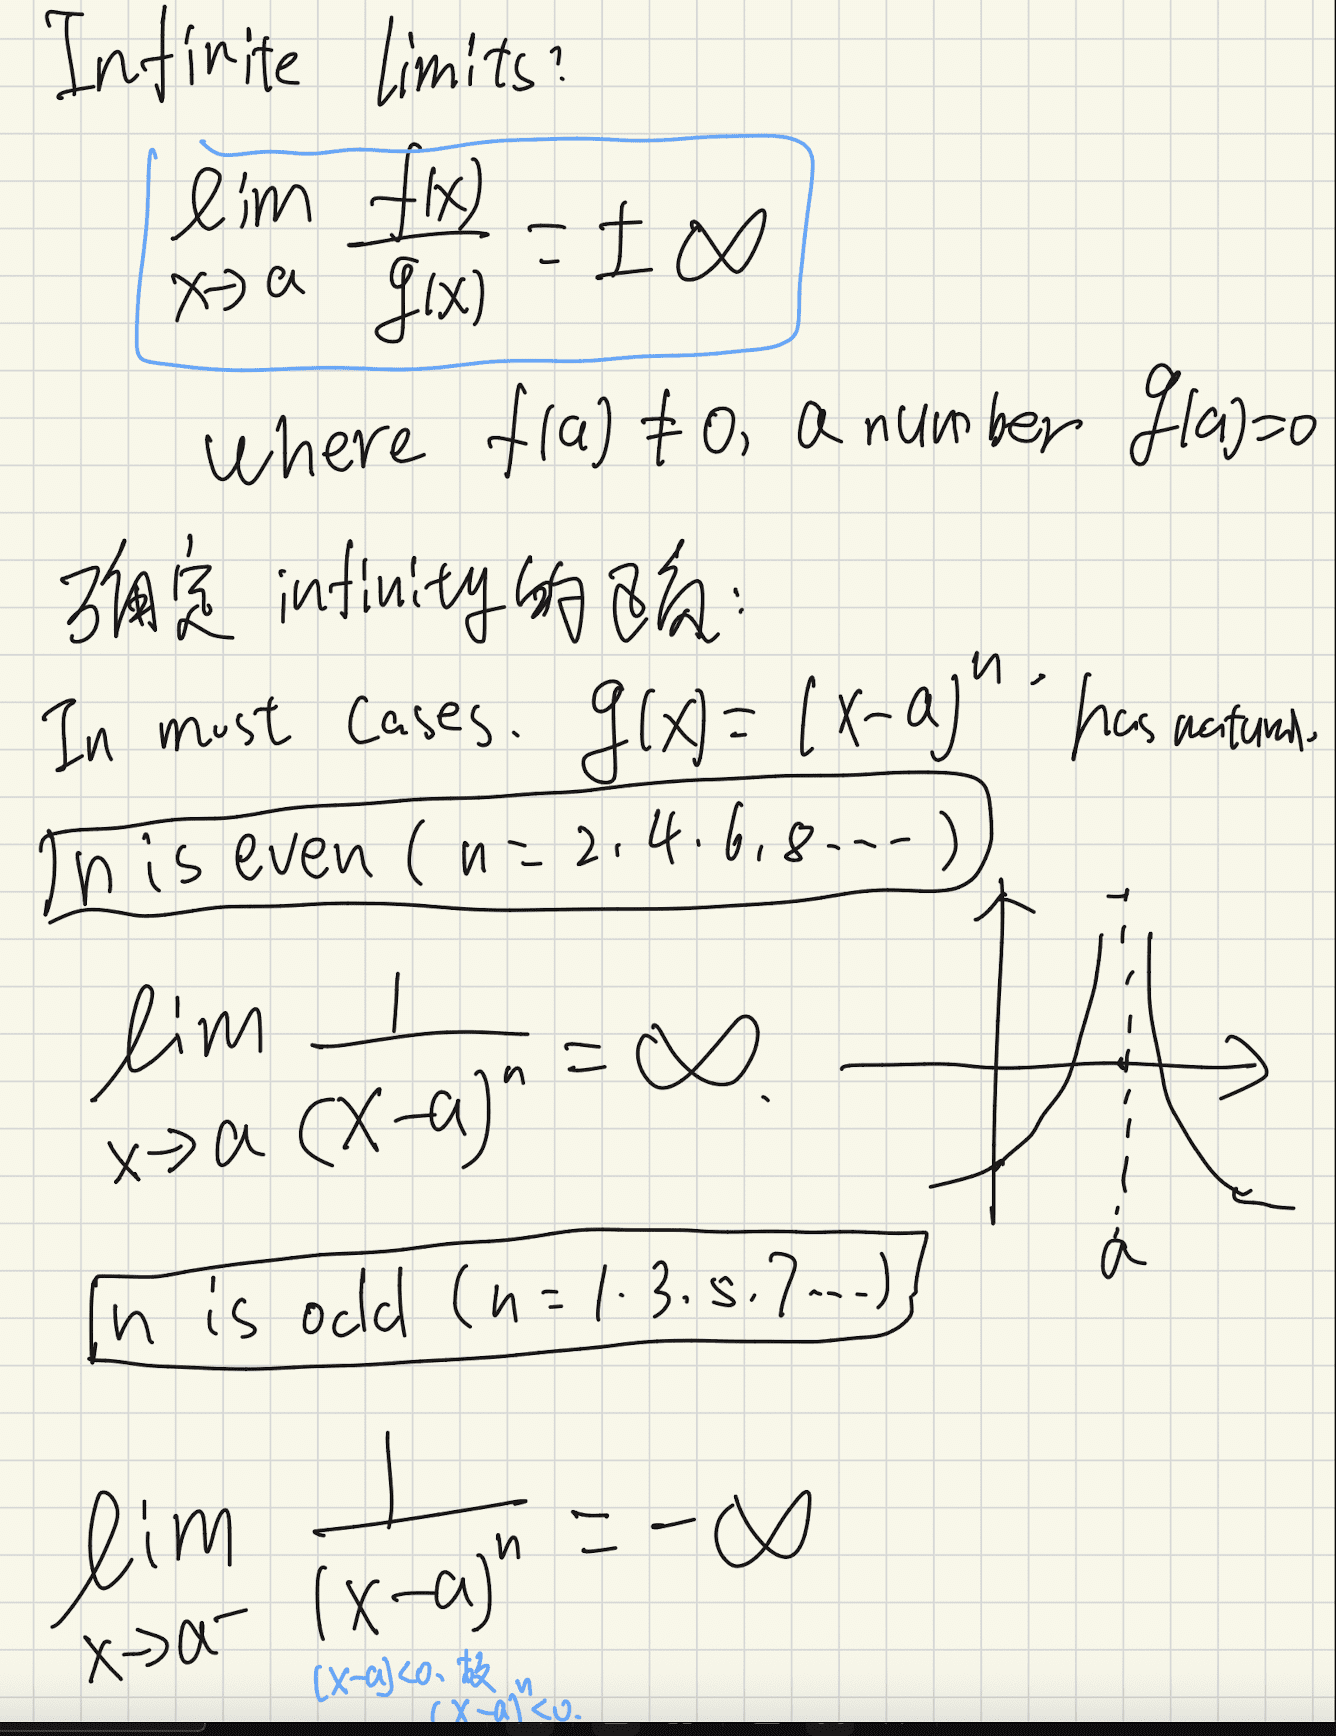 Infinite limits:
lim x→a f(x)/g(x) = ± ∞
where f(a) ≠ 0, a number g(a)=0
确定 infinity 的正负:
In most cases. g(x) = (x-a)^n. has
n is even (n = 2. 4. 6. 8----)
lim x→a 1/(x-a)^n = ∞.
a
n is odd (n = 1. 3. 5. 7----)
lim x→a⁻ 1/(x-a)^n = -∞
(x-a)<0. 故
(x-a)^n<0.